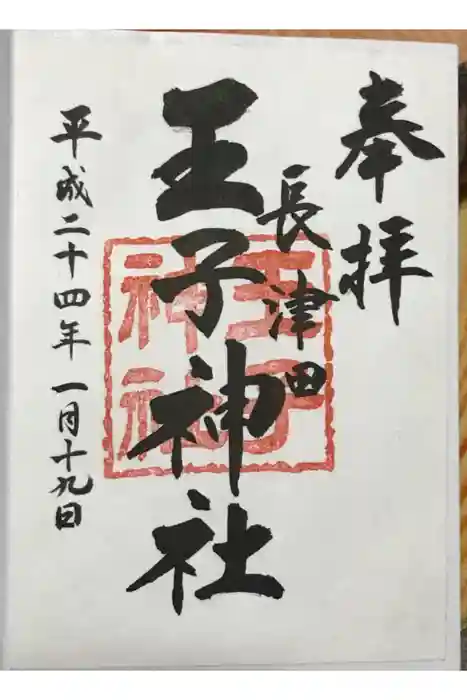 奉拝
長津田
王子神社
平成二十四年一月十九日
王子
神社